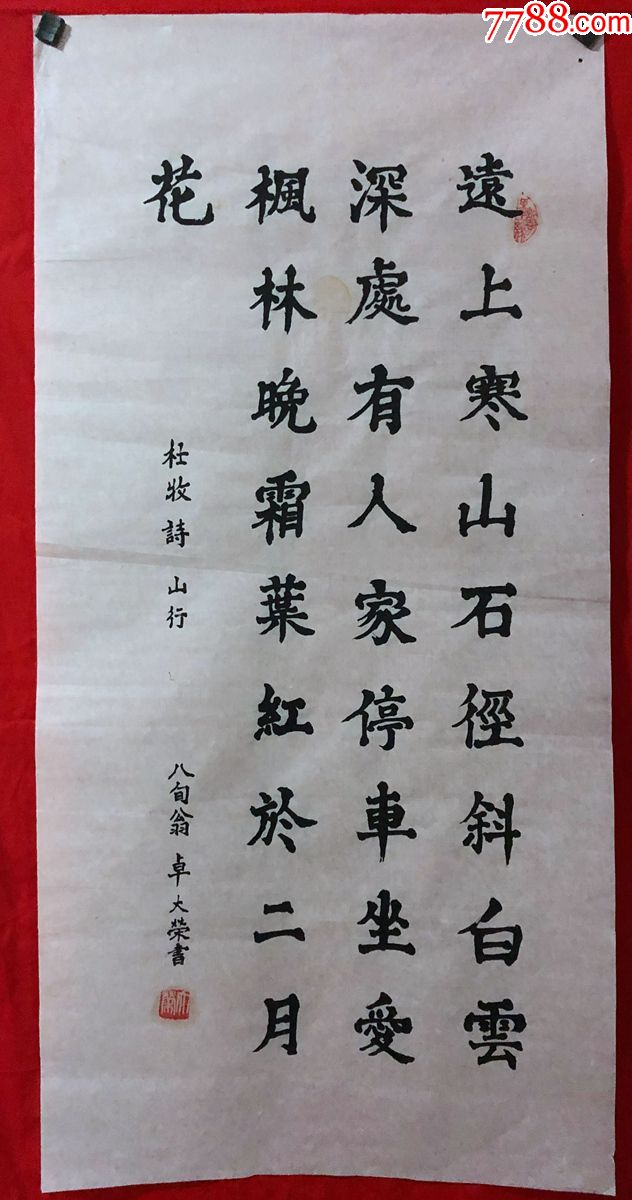 7788.com
遠上寒山石徑斜白雲
深處有人家停車坐愛
楓林晚霜葉紅於二月
花
杜牧詩 山行
八旬翁 卓大榮書